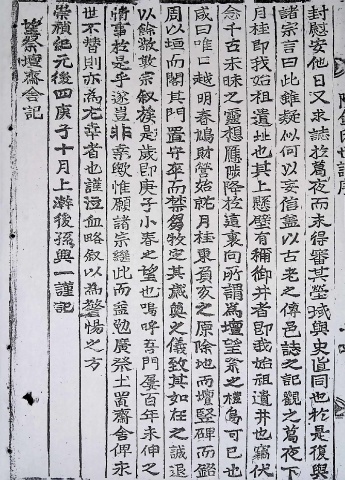 封慰安他日又求誌於葛夜而未得審其塋域與史直同也於是復與
諸宗言曰此雖疑似何以妄信盖以古老之傳邑誌之記觀之葛夜下
月桂即我始祖遺址也其上懸壁有稱御井者即我始祖遺井也竊伏
念千古未昧之靈想應陟降於遠裏向所謂爲壇望祭之權烏可已也
咸曰唯唯越明春鳩財管始於月桂東須亥之原除地而壇竪碑而
周以垣而閣其門置守卒而禁芻牧定其歲奠之儀致其如在之誠退
以餘敦宗叙族是歲即庚子小春之望也嗚呼吾門屢百年未伸之
情事於是乎遂豈非榮歟惟願諸宗繼此而益勉廣祭土置齋舍俾永
世不替則亦爲尤幸者也謹泣血略叙以爲警惕之方
崇禎紀元後四庚子十月上澣後孫興一謹記
望祭壇齋舍記